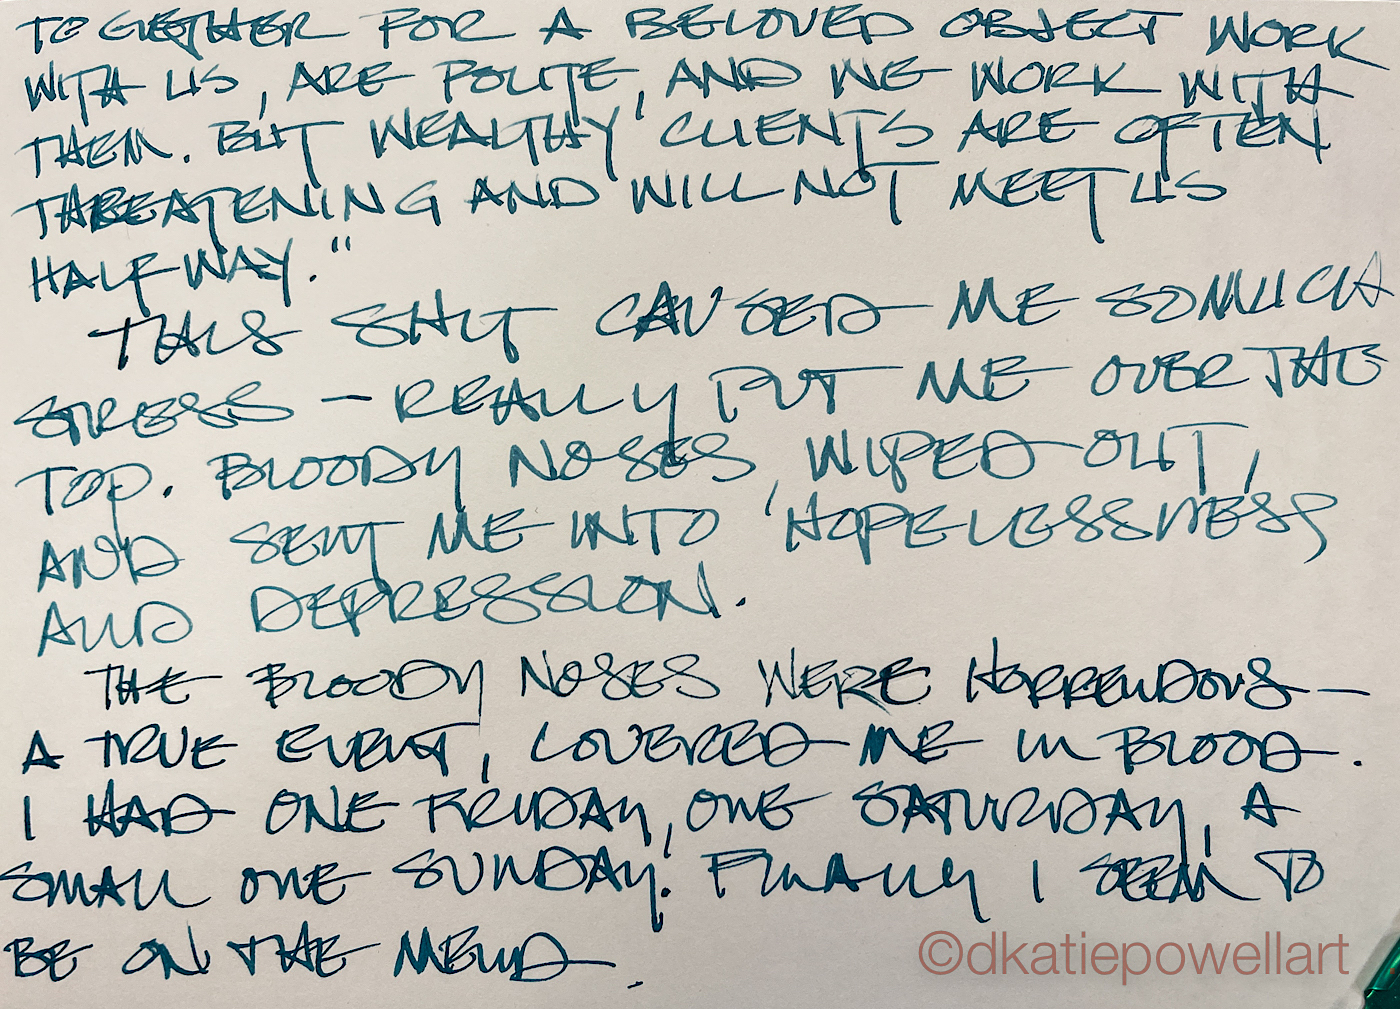 TOGETHER FOR A BELOVED OBJECT WORK
WITH US, ARE POLITE, AND WE WORK WITH
THEM. BUT WEALTHY CLIENTS ARE OFTEN
THREATENING AND WILL NOT MEET US
HALFWAY."
THIS SHIT CAUSED ME SO MUCH
STRESS – REALLY PUT ME OVER THE
TOP. BLOODY NOSES, WIPED OUT,
AND SENT ME INTO HOPELESSNESS
AND DEPRESSION.
THE BLOODY NOSES WERE HORRENDOUS –
A TRUE EVENT, COVERED ME IN BLOOD.
I HAD ONE FRIDAY, ONE SATURDAY, A
SMALL ONE SUNDAY. FINALLY I SEEM TO
BE ON THE MEND.
©dkatiepowellart